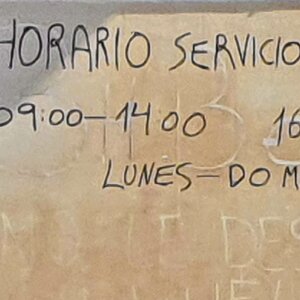 HORARIO SERVICIO
09:00-14:00 16
LUNES-DOM